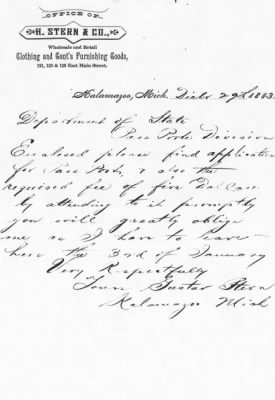 OFFICE OF
H. STERN & CO.,
Wholesale and Retail
Clothing and Gent's Furnishing Goods,
121, 123 & 125 East Main Street,
Kalamazoo, Mich. Decbr 29th 1883
Department of State
Pass Ports Division
Enclosed please find application
for Pass Port, & also the
required fee of five Dollars
by attending to it promptly
you will greatly oblige
me as I have to leave
here the 3rd of January
Very Respectfully
Yours Gustav Stern
Kalamazoo Mich